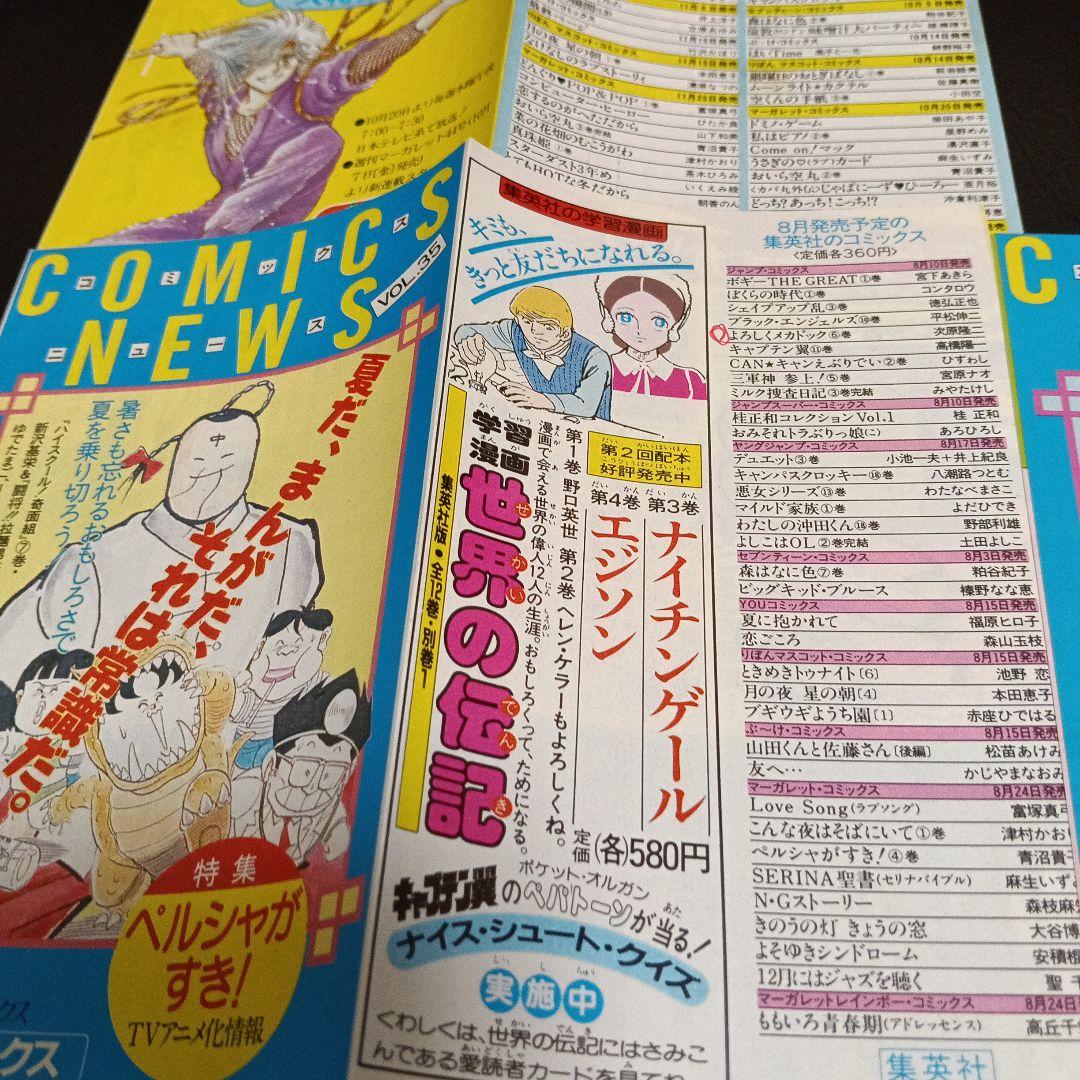 ●10月20日より毎週木曜午後
7:00〜7:30
日本テレビ系で放送!
●週刊マーガレット44号(10月
7日(金)発売)
より新連載スタ
11月15日発売
月の夜 星の朝
マーガレット・コミックス
11月25日発売
POP&POP
コンピューター・ヒーロー
恋するのがへただから
おいら空丸 ③巻完結
菜の花畑のむこうがわ
真珠姫 ①巻
スターダスト3年め
とてもHOTな冬だから
富塚真弓
ひたか良
山下和美
青沼貴子
津村かおり
茶木ひろみ
いくえみ綾
朝香のん
10月5日発売
セブンティーン・コミックス
森はなに色
10月14日発売
りぼん マスコット・コミックス
10月14日発売
銀曜日のおとぎばなし
ムーンライト♥カクテル
空くんの手紙
マーガレット・コミックス
10月25日発売
ドミノ・ゲーム
私はピアノ
Come on!マック
うさぎの(ラブ)カード
おいら空丸 ②巻
どっち?あっち!こっち!?
柴田あや子
星野めみ
湯沢直子
麻生いずみ
青沼貴子
亜月裕
沖倉利津子
COMICS
コミックス
NEWS
ニュース
VOL.35
夏だ、まんがだ、
それは常識だ。
暑さも忘れるおもしろさで
夏を乗り切ろう
『ハイスクール!奇面組』⑦巻・
新沢基栄&『闘将!!拉麺男
ゆでたまご
中
特集
ペルシャが
すき!
TVアニメ化情報
ックス
集英社の学習漫画
キミも、
きっと友だちになれる。
学習
漫画
世界の伝記
集英社版・全12巻・別巻1
漫画で会える世界の偉人12人の生涯。おもしろくって、ためになる。
第1巻 野口英世 第2巻 ヘレン・ケラーもよろしくね。
第2回配本
好評発売中
第3巻
ナイチンゲール
第4巻
エジソン
定価(各)580円
キャプテン翼の
ポケット・オルガン
ペパトーンが当る!
ナイス・シュート・クイズ
実施中
くわしくは、世界の伝記にはさみこ
んである愛読者カードを見てね
8月発売予定の
集英社のコミックス
〈定価各360円〉
ジャンプ・コミックス 8月10日発売
ボギーTHE GREAT ①巻 宮下あきら
ぼくらの時代 ①巻 コンタロウ
シェイプアップ乱 ③巻 徳弘正也
ブラック・エンジェルズ ⑩巻 平松伸二
よろしくメカドック ⑥巻 次原隆二
キャプテン翼 ⑪巻 高橋陽一
CAN★キャンえぶりでい ②巻 ひすわし
三軍神 参上! ⑤巻 宮原ナオ
ミルク捜査日記 ③巻完結 みやたけし
ジャンプスーパー・コミックス 8月10日発売
桂正和コレクションVol.1 桂 正和
おみそれトラぶりっ娘(こ) あろひろし
ヤングジャンプ・コミックス 8月17日発売
デュエット ③巻 小池一夫+井上紀良
キャンパスクロッキー ⑱巻 八潮路つとむ
悪女シリーズ ⑬巻 わたなべまさこ
マイルド家族 ①巻 よだひでき
わたしの沖田くん ⑱巻 野部利雄
よしこはOL ②巻完結 土田よしこ
セブンティーン・コミックス 8月3日発売
森はなに色 ⑦巻 粕谷紀子
ビッグキッド・ブルース 榛野なな恵
YOUコミックス 8月15日発売
夏に抱かれて 福原ヒロ子
恋ごころ 森山玉枝
りぼんマスコット・コミックス 8月15日発売
ときめきトゥナイト〔6〕 池野 恋
月の夜 星の朝〔4〕 本田恵子
ブギウギようち園〔1〕 赤座ひではる
ぶ〜け・コミックス 8月15日発売
山田くんと佐藤さん〔後編〕 松苗あけみ
友へ… かじやまなおみ
マーガレット・コミックス 8月24日発売
Love Song(ラブソング) 富塚真弓
こんな夜はそばにいて ①巻 津村かおり
ペルシャがすき! ④巻 青沼貴子
SERINA聖書(セリナバイブル) 麻生いずみ
N・Gストーリー 森枝麻
きのうの灯 きょうの窓 大谷博
よそゆきシンドローム 安積棍
12月にはジャズを聴く 聖 千
マーガレットレインボー・コミックス 8月24日発
ももいろ青春期(アドレッセンス) 高丘千
集英社
C
コ